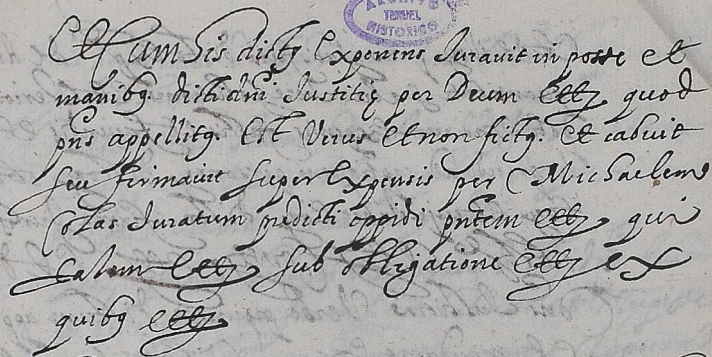 ARCHIVO
TERUEL
HISTORICO
Et cum his dictus exponens Juravit in posse et
manibus dicti dni Justitię per Deum etc quod
pns appellitus est verus et non fictus. et cabuit
seu firmavit super expensis per Michaelem
Colas Juratum predicti oppidi pntem etc qui
talem etc sub obligatione etc ex
quibus etc